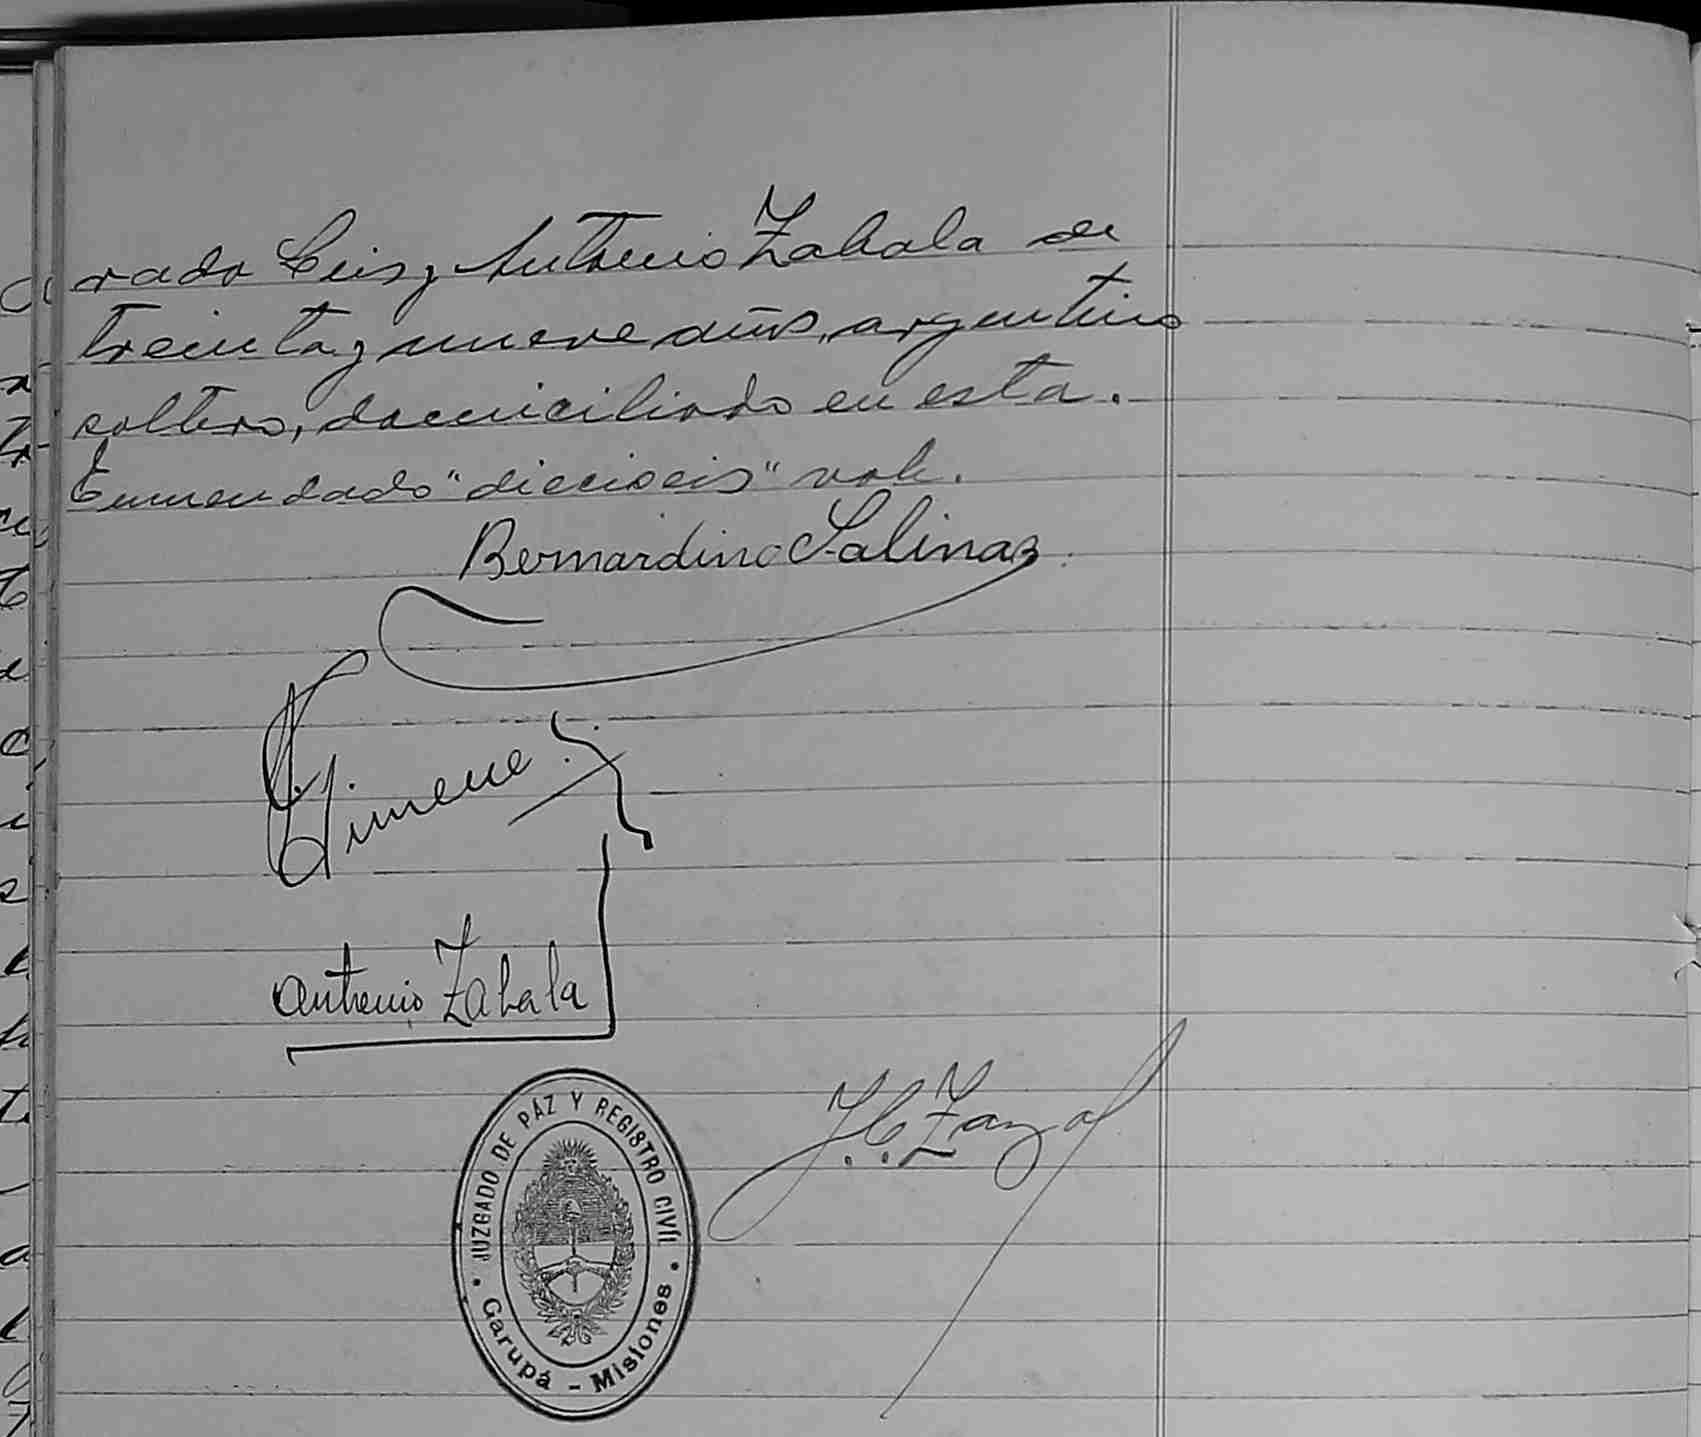 rado Cerro y Antonio Zabala de
treinta y nueve años, argentino
soltero, domiciliado en esta.
Enmendado "dieciseis" vale.
Bernardino Salinas
Gimenez
Antonio Zabala
JUZGADO DE PAZ Y REGISTRO CIVIL
Garupá - Misiones